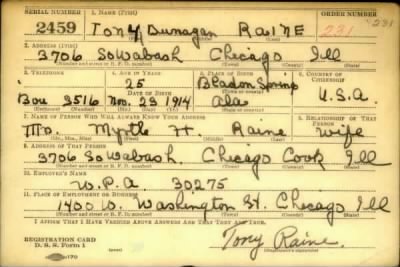 SERIAL NUMBER 1. NAME (Print) ORDER NUMBER
2459 Tony Dunagan Raine 231 231
(First) (Middle) (Last)
2. ADDRESS (Print)
3706 So Wabash Chicago Ill
(Number and street or R. F. D. number) (Town) (County) (State)
3. TELEPHONE 4. AGE IN YEARS 5. PLACE OF BIRTH 6. COUNTRY OF CITIZENSHIP
25 Bladon Springs
DATE OF BIRTH
Bou 3516 Nov. 23 1914 Ala U.S.A.
(Exchange) (Number) (Mo.) (Day) (Yr.) (State or country)
7. NAME OF PERSON WHO WILL ALWAYS KNOW YOUR ADDRESS 8. RELATIONSHIP OF THAT PERSON
Mrs. Myrtle H. Raine wife
(Mr., Mrs., Miss) (First) (Middle) (Last)
9. ADDRESS OF THAT PERSON
3706 So Wabash, Chicago Cook Ill
(Number and street or R. F. D. number) (Town) (County) (State)
10. EMPLOYER'S NAME
W.P.A 30275
11. PLACE OF EMPLOYMENT OR BUSINESS
1400 W. Washington St. Chicago Ill
(Number and street or R. F. D. number) (Town) (County) (State)
I AFFIRM THAT I HAVE VERIFIED ABOVE ANSWERS AND THAT THEY ARE TRUE.
REGISTRATION CARD
D. S. S. Form 1 Tony Raine